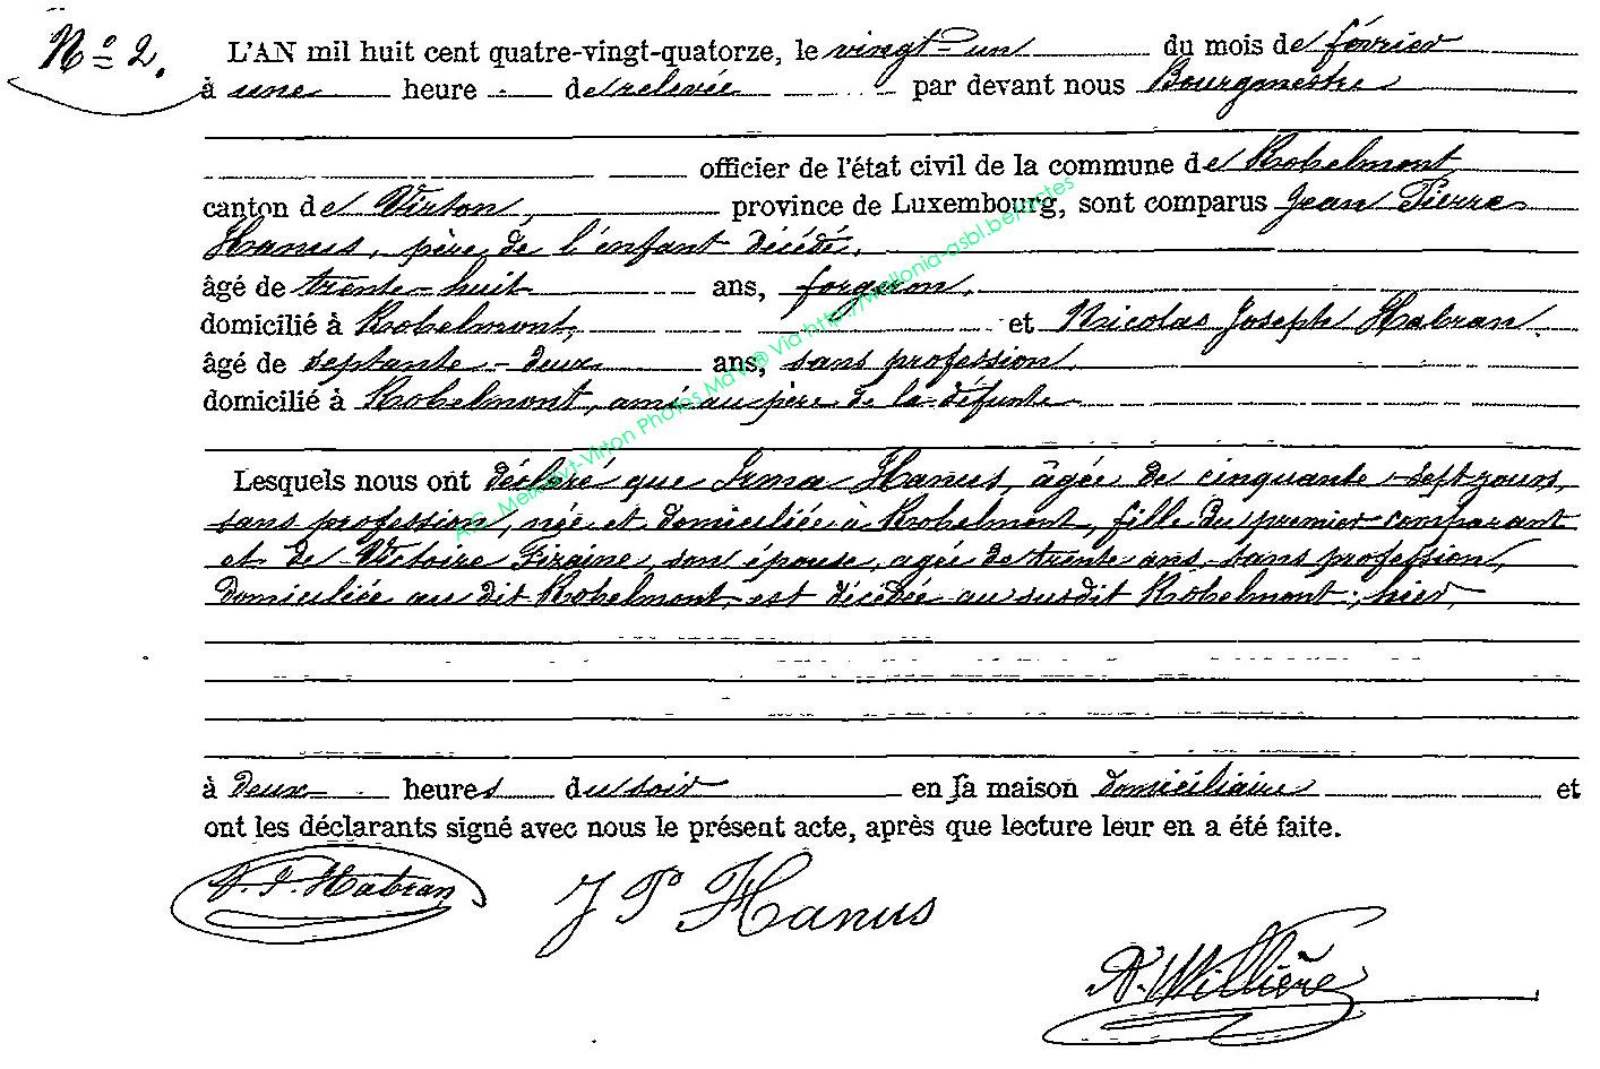 Nº 2.
L'AN mil huit cent quatre-vingt-quatorze, le vingt-un du mois de février
à une heure de relevée par devant nous Bourgmestre
officier de l'état civil de la commune de Robelmont
canton de Virton, province de Luxembourg, sont comparus Jean Pierre
Hanus, père de l'enfant décédé,
âgé de trente-huit ans, forgeron,
domicilié à Robelmont, et Nicolas Joseph Habran,
âgé de septante-deux ans, sans profession,
domicilié à Robelmont, ami au père de la défunte
Lesquels nous ont déclaré que Irma Hanus, âgée de cinquante-sept jours,
sans profession, née et domiciliée à Robelmont, fille du premier comparant
et de Victoire Fizaine, son épouse, agée de trente ans, sans profession,
domiciliée au dit Robelmont, est décédée au susdit Robelmont, hier,
à deux heures du soir en sa maison domiciliaire et
ont les déclarants signé avec nous le présent acte, après que lecture leur en a été faite.
N. J. Habran J P Hanus
Willière
Virton Photos MaVi® Via http://wallonia-asbl.be/actes